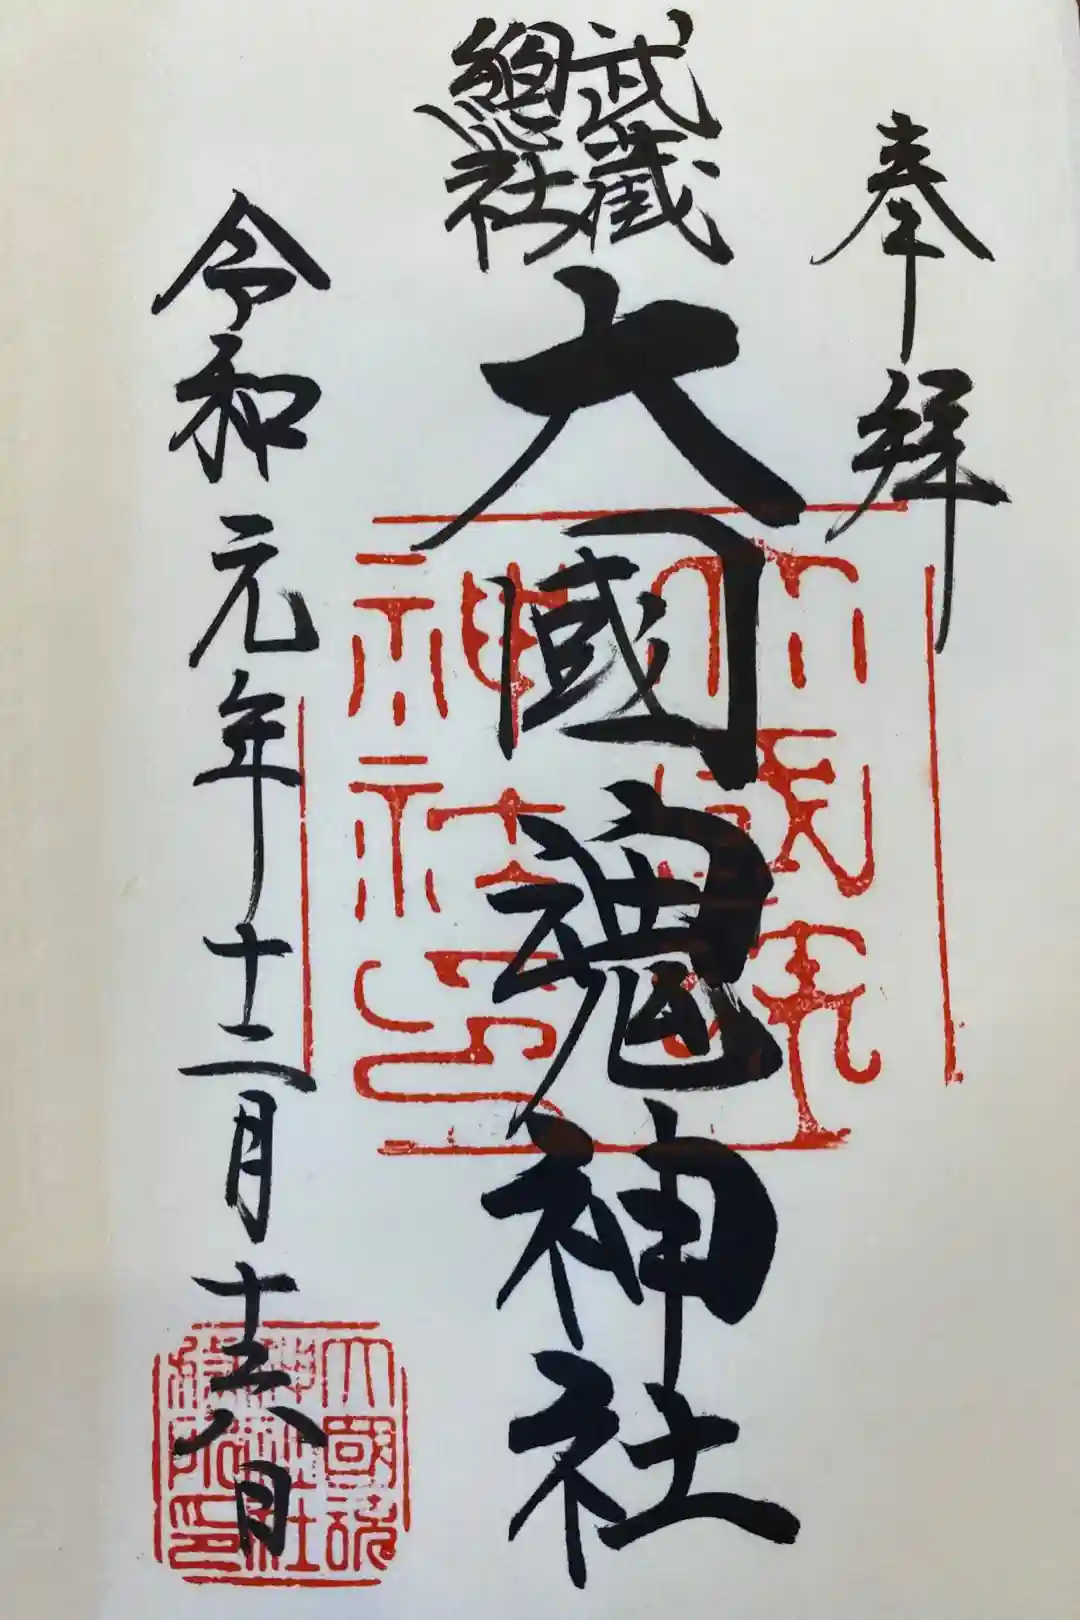 奉拝
武蔵
總社
大國魂神社
令和元年十二月十六日
大國魂
神社印
大國魂
神社社
務所印